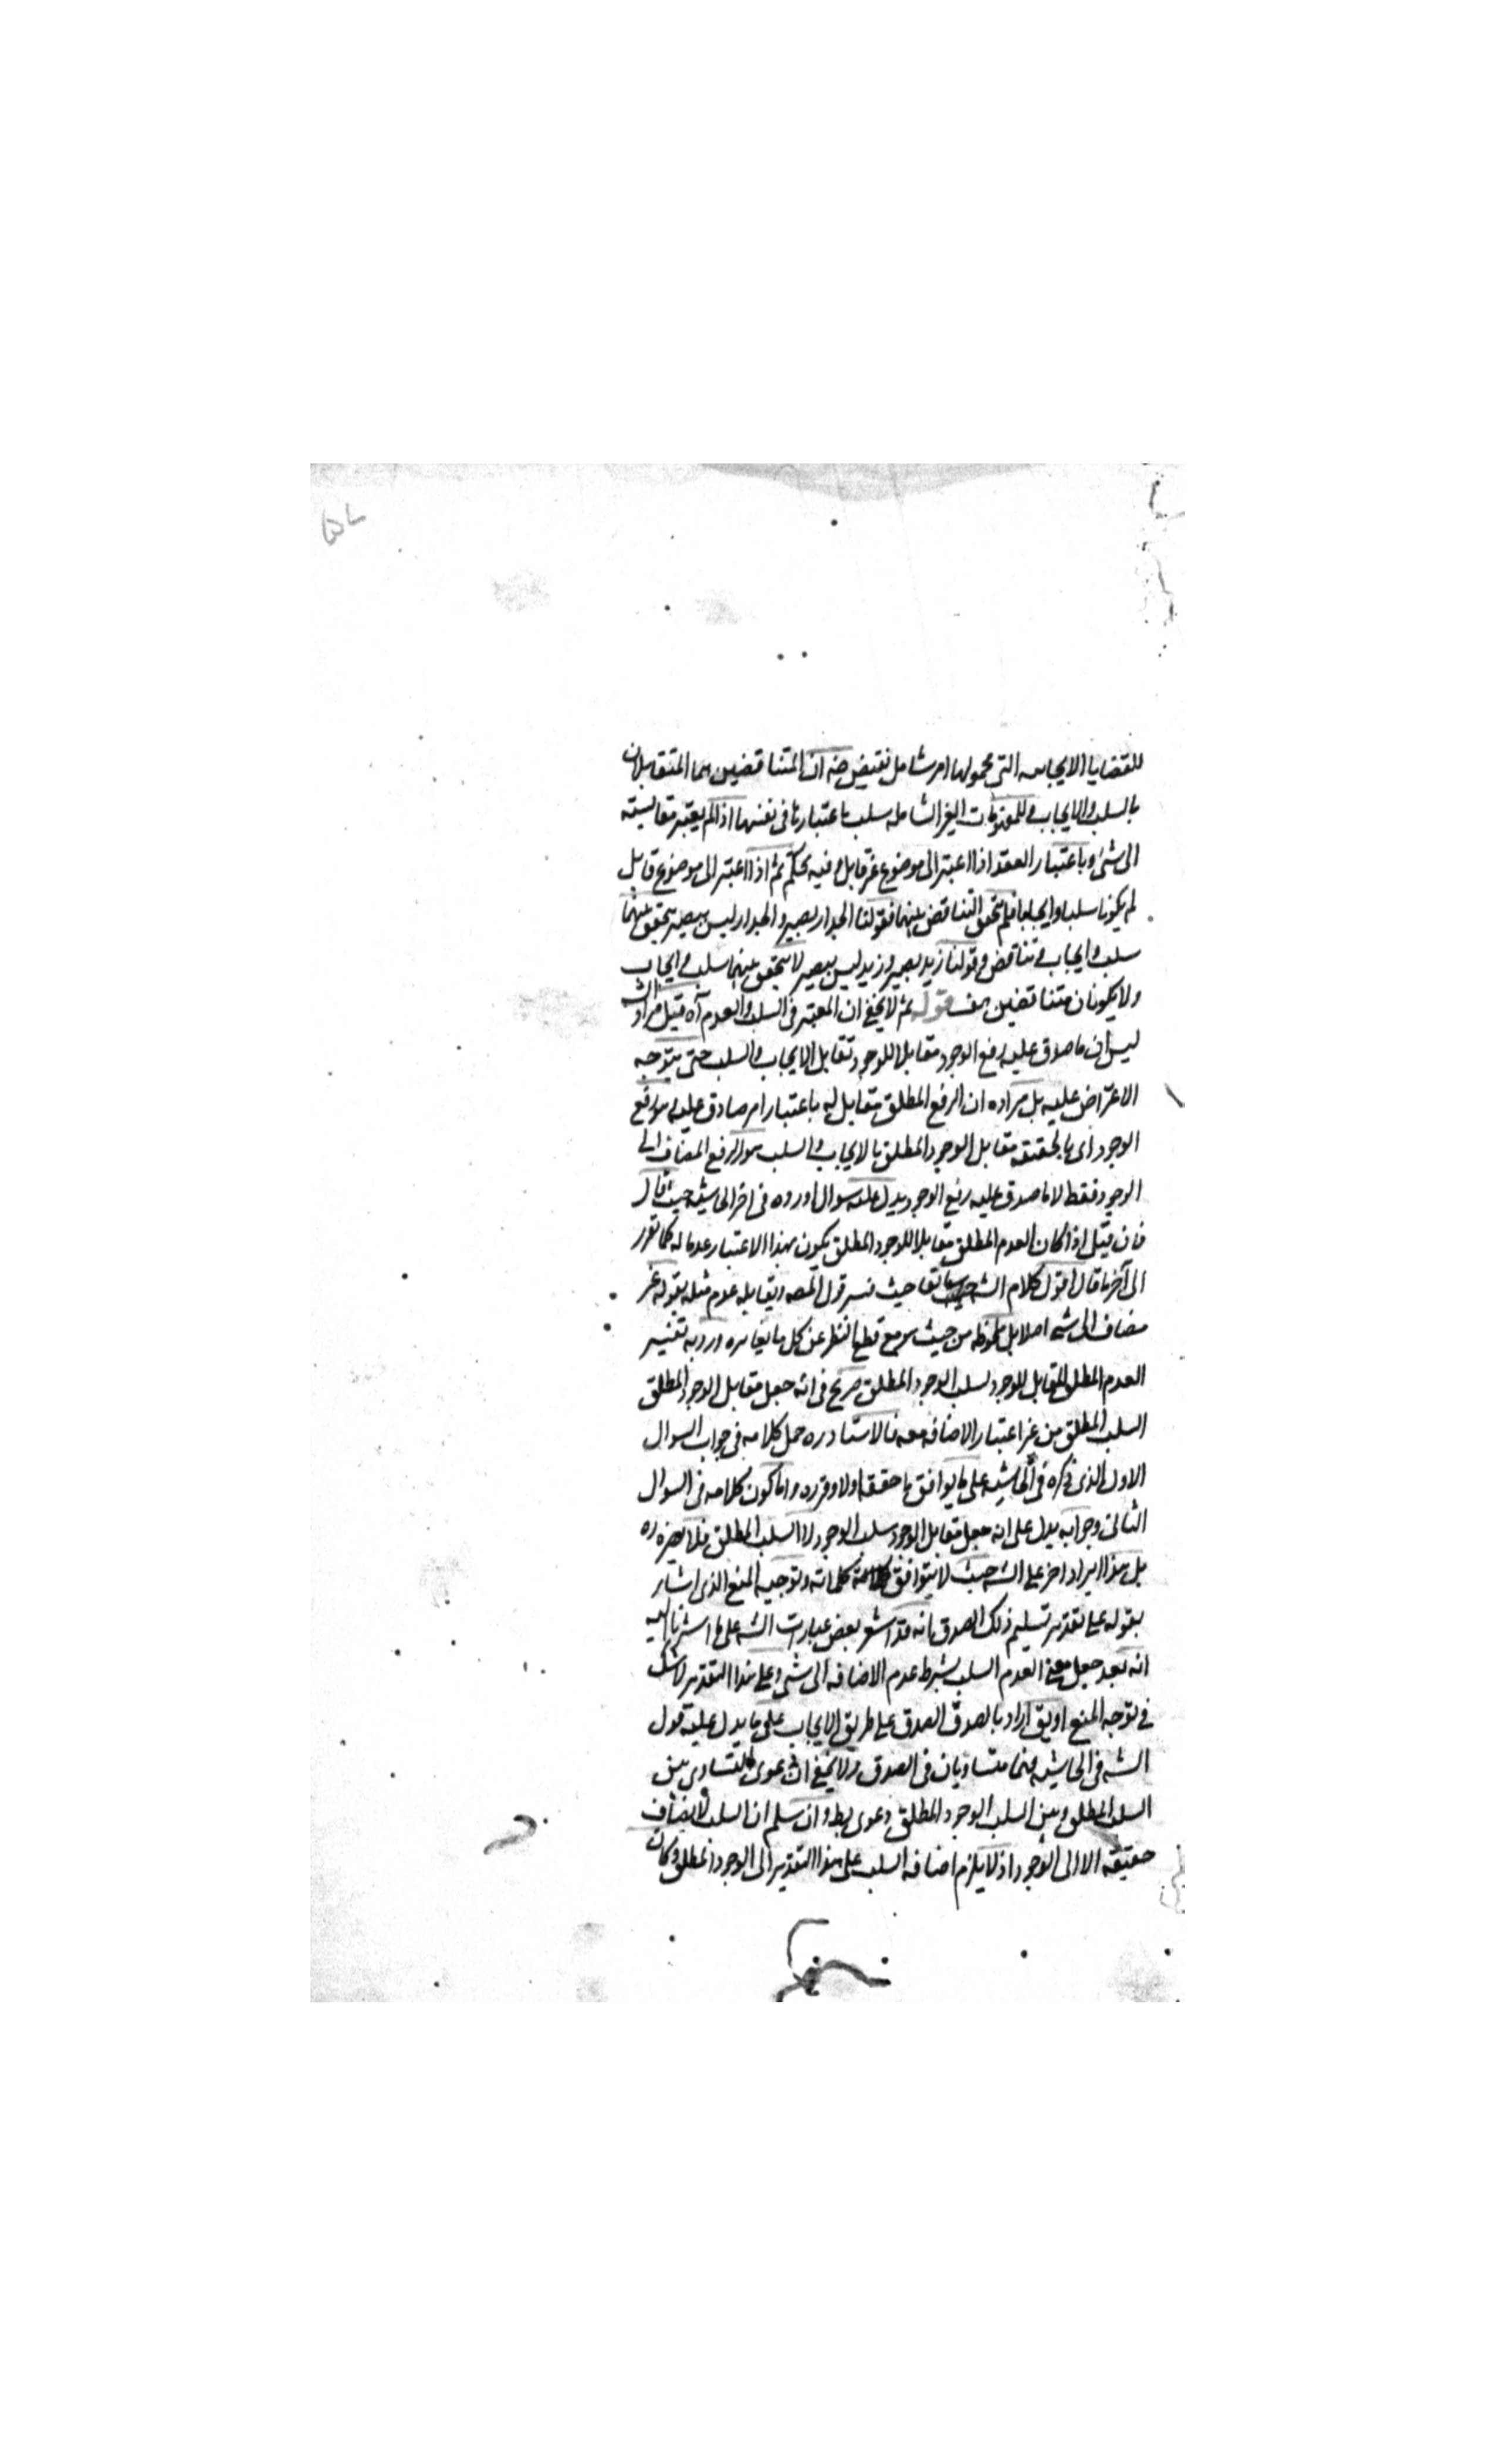 للقضايا الايجابيه التى محمولها امر شامل نقيض ضه ان المتناقضين هما المتقابلان
بالسلب والايجاب وللمفهومات الغير الشامله سلب باعتبارها فى نفسها اذا لم يعتبر مقايسته
الى شئ وباعتبار العقد اذا اعتبر الى موضوع غير قابل وفيه محكم ثم اذا اعتبر الى موضوع قابل
لم يكونا سلبا وايجابا فلم يتحقق التناقض بينهما فقولنا الجدار بصير والجدار ليس ببصير يتحقق بينهما
سلب وايجاب وتناقض وقولنا زيد بصير وزيد ليس ببصير لا يتحقق بينهما سلب وايجاب
ولا يكونان متناقضين هف قوله ثم لا يخفى ان المعتبر فى السلب والعدم آه قيل مراد الشه
ليس ان ما صدق عليه رفع الوجود مقابلا للوجود تقابل الايجاب والسلب حتى يتوجه
الاعتراض عليه بل مراده ان الرفع المطلق مقابل له باعتبار امر صادق عليه هو رفع
الوجود اى بالحقيقه مقابل الوجود المطلق بالايجاب والسلب هو الرفع المضاف الى
الوجود فقط لا ما صدق عليه رفع الوجود يدل عليه سوال اورده فى اخر الحاشيه حيث قال
فان قيل اذا كان العدم المطلق مقابلا للوجود المطلق يكون بهذا الاعتبار عدما له كما تقرر
الى آخر ما قال اقول كلام الشه سابقا حيث فسر قول المصه ويقابله عدم مثله بقوله غير
مضاف الى شئ اصلا بل ملحوظه من حيث هو مع قطع النظر عن كل ما يغايره ورد به تفسير
العدم المطلق المقابل للوجود لسلب الوجود المطلق صريح فى انه جعل مقابل الوجود المطلق
السلب المطلق من غير اعتبار الاضافه معه فالاستاد ره حمل كلامه فى جواب السوال
الاول الذى ذكره فى الحاشيه على ما يوافق ما حققه اولا وقرره واما كون كلامه فى السوال
الثانى وجوابه يدل على انه جعل مقابل الوجود سلب الوجود لا السلب المطلق فلا يضره ره
بل هذا ايراد اخر على الشه حيث لا يتوافق كلماته وتوجيه المنع الذى اشار
بقوله على تقدير تسليم ذلك الصدق بانه قد اشعر بعض عبارات الشه على ما اشرنا اليه
انه بعد جعل معنى العدم السلب بشرط عدم الاضافه الى شئ وعلى هذا التقدير لا شك
فى توجه المنع او يق اراد بالصدق الصدق على طريق الايجاب على ما يدل عليه قول
الشه فى الحاشيه فهما متساويان فى الصدق ولا يخفى ان دعوى التساوى بين
السلب المطلق وبين السلب الوجود المطلق دعوى بط وان سلم ان السلب لا يضاف
حقيقه الا الى الوجود اذ لا يلزم اضافه السلب على هذا التقدير الى الوجود المطلق وكان